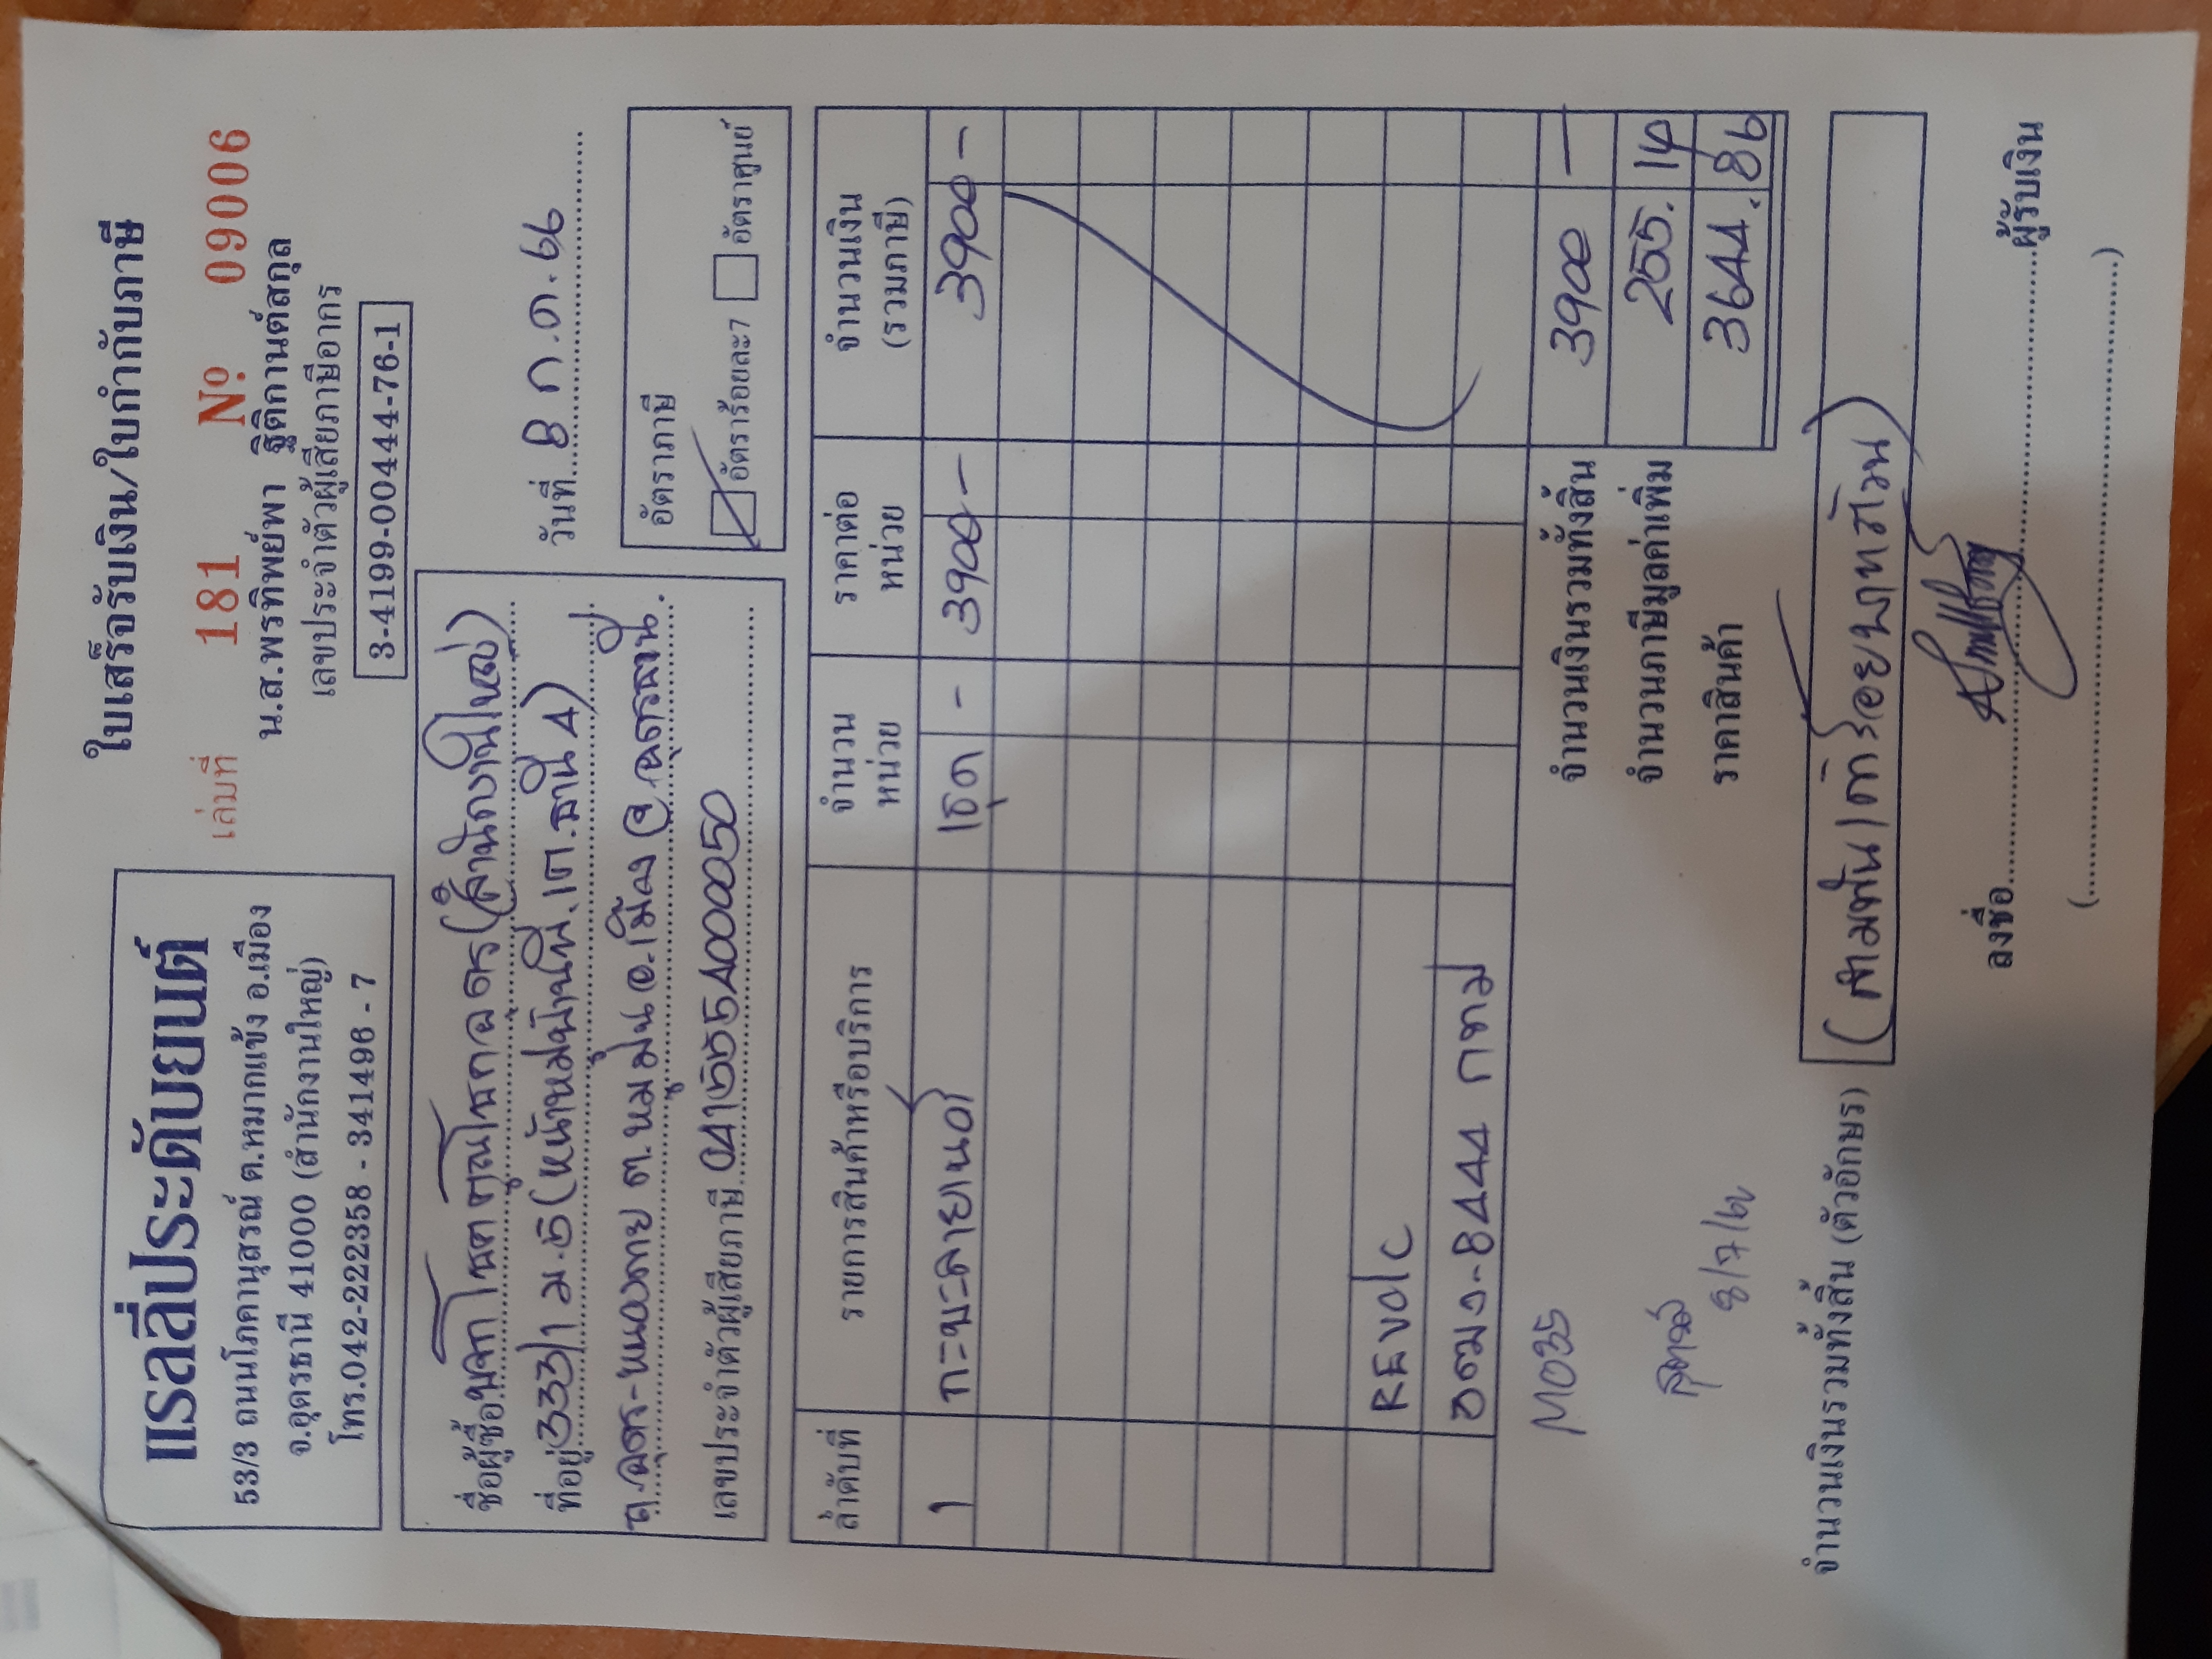 แรลลี่ประดับยนต์
53/3 ถนนโภคานุสรณ์ ต.หมากแข้ง อ.เมือง
จ.อุดรธานี 41000 (สำนักงานใหญ่)
โทร.042-222358 - 341496 - 7
ใบเสร็จรับเงิน/ใบกำกับภาษี
เล่มที่ 181 Nº 09006
น.ส.พรทิพย์พา ฐิติกานต์สกุล
เลขประจำตัวผู้เสียภาษีอากร
3-4199-00444-76-1
ชื่อผู้ซื้อ (สำนักงานใหญ่)
ที่อยู่ 333/1 ม.5
ต.หมูม่น อ.เมือง จ.อุดรธานี
เลขประจำตัวผู้เสียภาษี 0415554000050
วันที่ 8 ก.ค. 66
อัตราภาษี
อัตราร้อยละ7 อัตราศูนย์
ลำดับที่ รายการสินค้าหรือบริการ จำนวนหน่วย ราคาต่อหน่วย จำนวนเงิน (รวมภาษี)
1 กะบะลายเนอ 1ชุด - 3900 - 3900 -
REvo/c
8444 กทม
จำนวนเงินรวมทั้งสิ้น 3900 -
M035
จำนวนภาษีมูลค่าเพิ่ม 255.14
ราคาสินค้า 3644.86
8/7/66
จำนวนเงินรวมทั้งสิ้น (ตัวอักษร) (สามพันเก้าร้อยบาทถ้วน)
ลงชื่อ ผู้รับเงิน